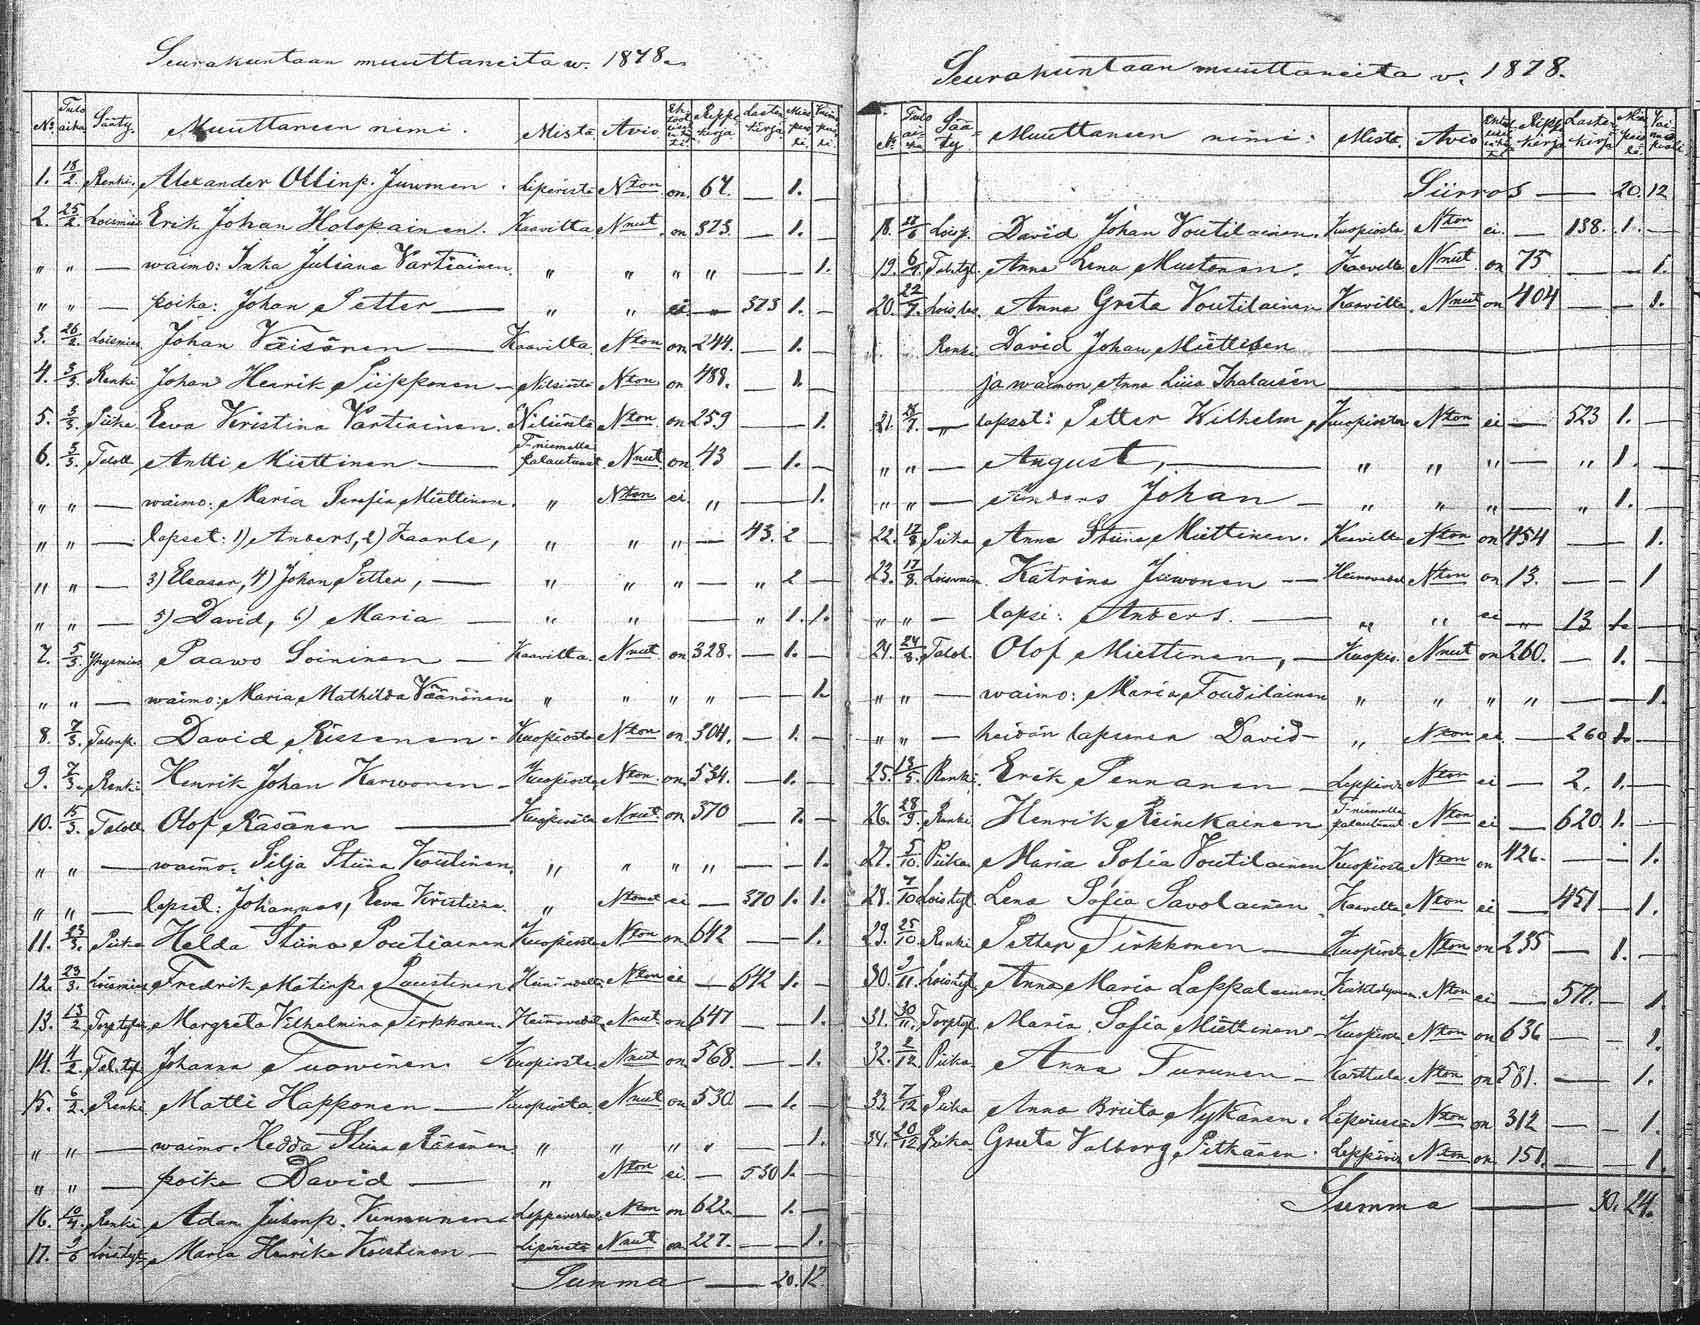 Seurakuntaan muuttaneita w. 1878.
No. Tulo aika Sääty. Muuttaneen nimi. Mistä. Avio. Rippi kirja. Lasten kirja.
1. 18/2 Renki. Alexander Ollinp. Juvonen. Liperistä Nton on. 64. — 1. —
2. 25/2 Loismies Erik Johan Holopainen. Kaavilta Nnut. on 373. — 1. —
" " — waimo: Inka Juliana Vartiainen. " " " " — — 1.
" " — poika: Johan Petter — " " ei — 373 1. —
3. 26/2. Loismies Johan Väisönen — Kaavilta Nton on 244. — 1. —
4. 3/3. Renki Johan Henrik Siipponen — Nilsiästä Nton on 488. — 1. —
5. 3/3. Piika Eeva Kristina Vartiainen. Nilsiästä Nton on 259 — — 1.
6. 3/3. Taloll. Antti Miettinen — T-niemelle palautunut Nnut on 43 — 1. —
" " — waimo: Maria Serafia Miettinen. " Nton ei. " — — 1.
" " — lapset: 1) Anders, 2) Kaarle, " " " — 43. 2 —
" " — 3) Eleasar, 4) Johan Petter, — " " " — " 2 —
" " — 5) David, 6) Maria — " " " — " 1. 1.
7. 5/3. Paawo Soininen — Kaavilta. Nnut on 328. — 1. —
" " — waimo: Maria Mathilda Väänänen " " " " — — 1.
8. 7/3. Talonp. David Rissanen — Kuopiosta Nton on. 304. — 1. —
9. 7/3. Renki Henrik Johan Karvonen — Kuopiosta Nton. on. 534. — 1. —
10. 15/3. Taloll. Olof Räsänen — Kuopiosta Nnut on 370 — 1. —
" " — waimo: Silja Stiina Koistinen. " " " " — — 1.
" " — lapset: Johannes, Eeva Kristiina. " Ntomat ei — 370 1. 1.
11. 23/3. Piika Helda Stiina Poutiainen Kuopiosta Nton on 642 — — 1.
12. 23/3. Loismies Fredrik Matinp. Laustinen Heinävedeltä Nton ei — 642 1. —
13. 13/2 Margreta Vilhelmina Tirkkonen. Heinävedeltä Nnut on 647 — — 1.
14. 4/2 Tal.tyt Johanna Tuovinen. Kuopiosta Nnut on 568. — — 1.
15. 6/2. Renki Matti Happonen — Kuopiosta Nnut on 530 — 1. —
" " — waimo. Hedda Stiina Räsänen " " " " — 1.
" " — poika David — " Nton ei — 530 1. —
16. 10/4. Renki Adam Juhonp. Kunnunen Nton on 622. — 1. —
17. Loistyt. Maria Henrika Koistinen — Liperistä Nnut on 227. — — 1.
Summa — 20. 12.
Seurakuntaan muuttaneita v. 1878.
No. Tulo aika Sää- ty Muuttaneen nimi. Mistä. Avio Rippi kirja Lasten kirja
Siirros — 20. 12
18. Loisp. David Johan Voutilainen. Kuopiosta Nton ei. — 138. 1. —
19. Tal.tyt. Anna Lena Mustonen. Kaavilta Nnut on 75 — — 1.
20. 22/7. Anna Greta Voutilainen Kaavilta Nnut on 404 — — 1.
Renki David Johan Miettinen
ja waimon Anna Liisa Ihalaisen
21. lapset: Petter Wilhelm, Kuopiosta Nton ei — 523 1. —
" " — August, — " " " — " 1. —
" " — Anders Johan — " " " — " 1. —
22. 17/8. Piika Anna Stiina Miettinen. Kaavilta Nton on 454 — — 1.
23. 17/8. Katrina Juwonen — Heinävedel Nton on 13. — — 1
" " — lapsi: Anders. — " " ei — 13 1. —
24. 24/8. Talol. Olof Miettinen, — Kuopio. Nnut on 260. — 1. —
" " — waimo: Maria Toudilainen " " " " — — 1.
" " — heidän lapsensa David — " Nton ei. — 260 1. —
25. 13/5. Renki. Erik Pennanen — Nton ei — 2. 1. —
26. 28/9. Renki Henrik Reinikainen T-niemelle palautunut Nton ei — 620. 1. —
27. 5/10. Piika Maria Sofia Voutilainen Kuopiosta Nton on 426. — — 1.
28. 7/10 Loistyt. Lena Sofia Savolainen Kaavilta Nton ei — 451 — 1.
29. 25/10. Renki Petter Tirkkonen — Kuopiosta Nton on 235 — 1. —
30. Loistyt. Anna Maria Lappalainen Nton ei — — 1.
31. 30/11. Maria Sofia Miettinen — Kuopiosta Nton on 636 — — 1.
32. 2/12. Piika Anna Turunen — Karttula Nton on 581. — — 1.
33. 7/12 Piika Anna Briita Nykänen. Nton on 312 — — 1.
34. 20/12 Piika Greeta Valborg Pitkänen. Nton on 151. — — 1.
Summa — 30. 24.